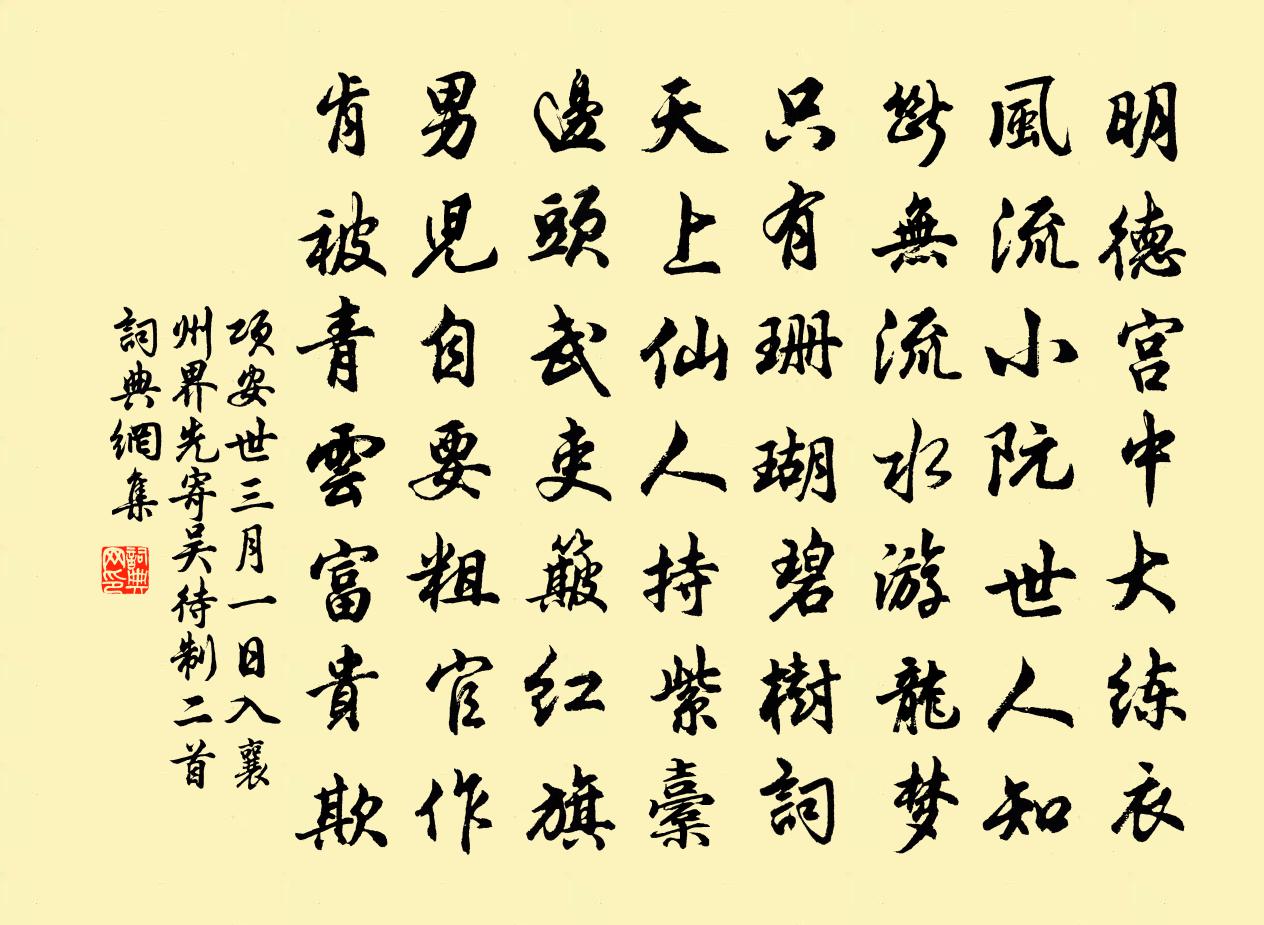 明德宫中大练衣
風流小阮世人知
斷無流水游龍梦
只有珊瑚碧樹詞
天上仙人持紫橐
邊頭武吏簸红旗
男児自要粗官作
肯被青雲富貴欺
项安世三月一日入襄
州界先寄吴待制二首
詞典網集
詞典
网印